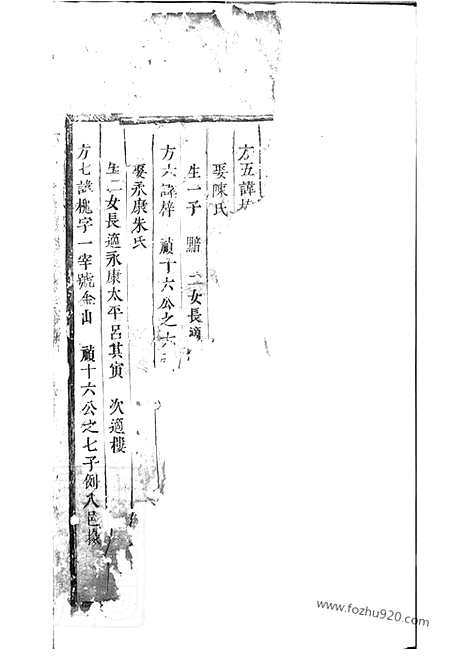 方五諱
娶陳氏
生一子 黯 二女長適
方六諱梓 禎十六公之六
娶永康朱氏
生二女長適永康太平呂其寅 次適樓
方七諱槐字一宰號金山 禎十六公之七子例入邑
www.fozhu920.com